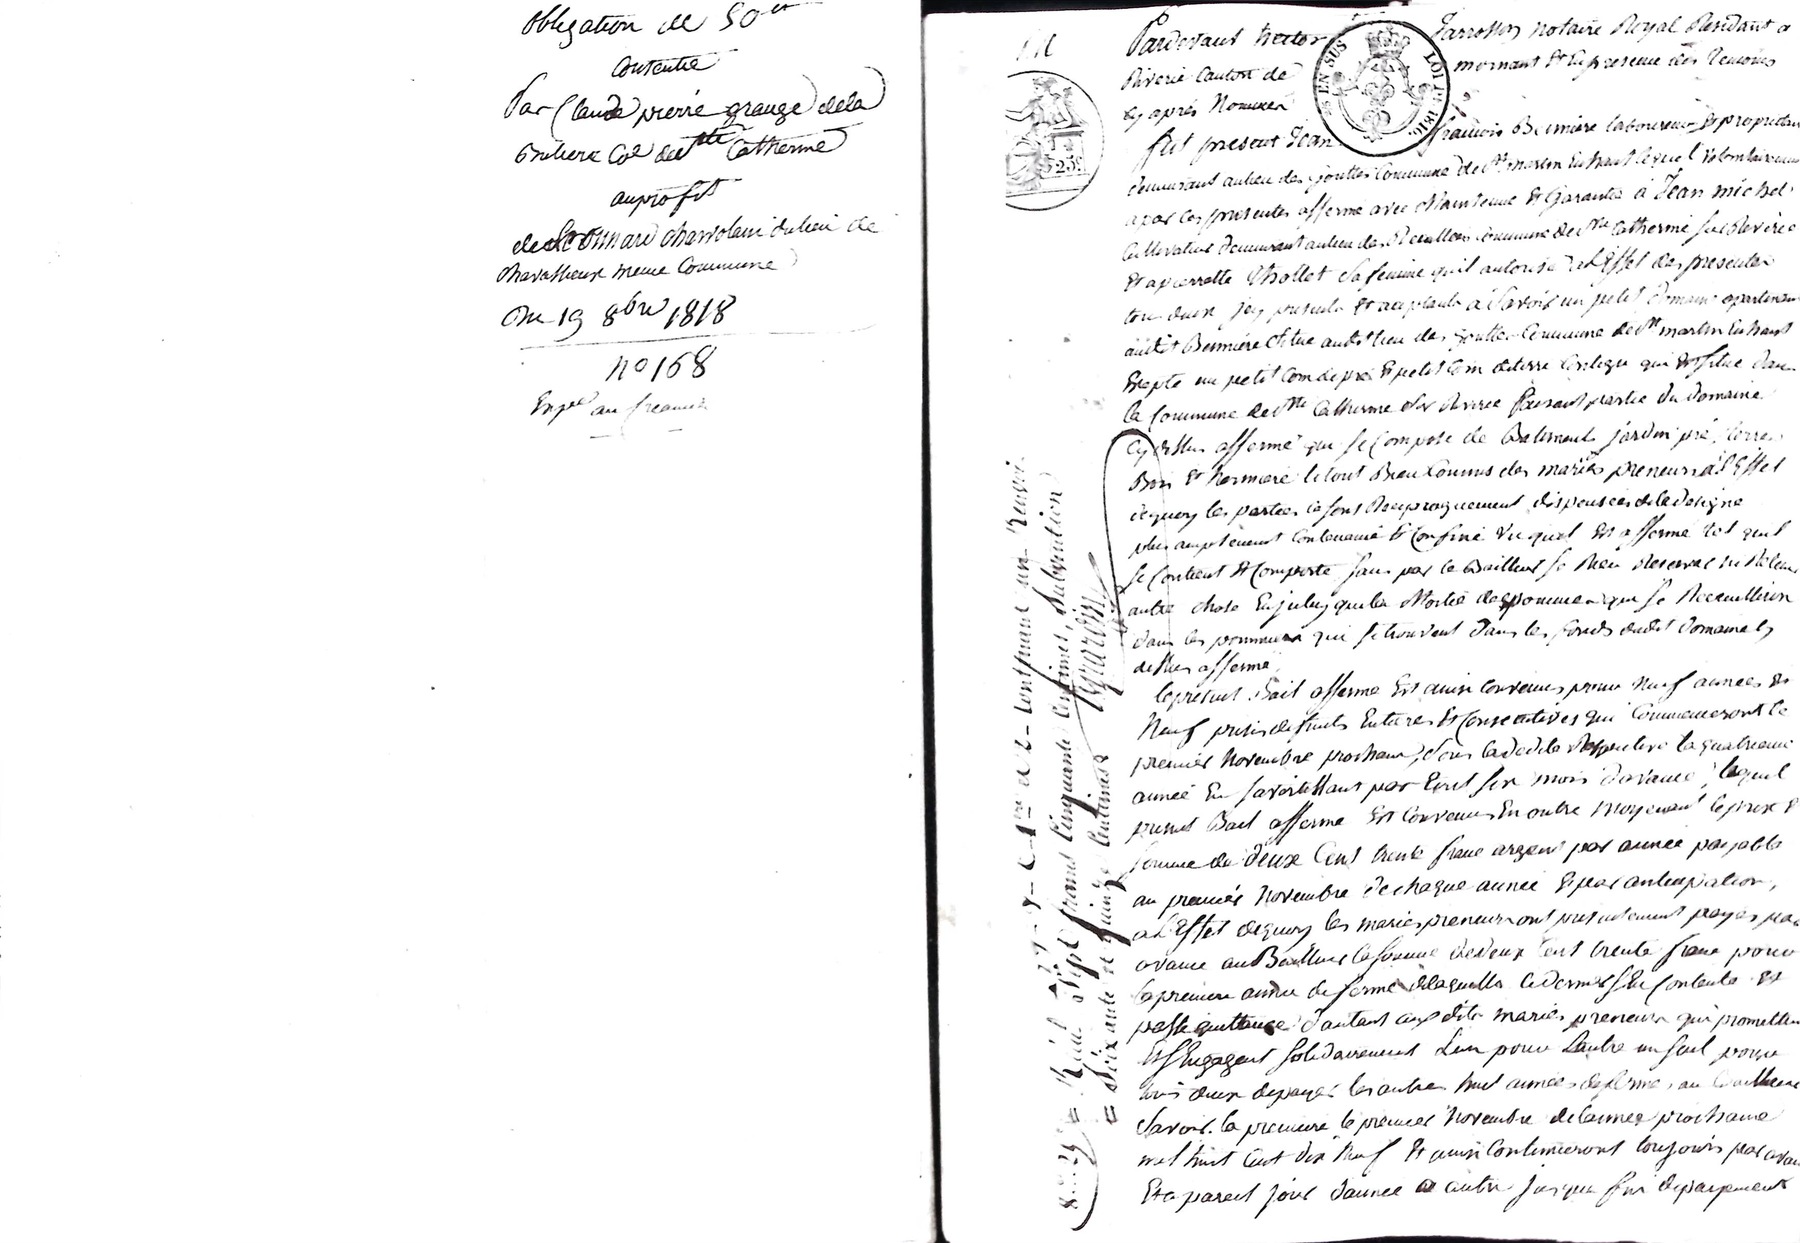 obligation de 50 #
Contentie
Par Claude pierre grange dela
Cne de Ste Catherine
auprofit
de Leonnard charvolain dulieu de
Chavassieux meme Commune
Du 19 8bre 1818
no 168
Exped au
Pardevant hector Jarrosson notaire Royal Residant a
Riverie Canton de mornant Et En presence des Temoins
Cy après Nommés
fut present Jean francois Bernière laboureur Et proprietaire
demeurant aulieu des gouttes Commune de St martin En haut lequel volontairement
a par Ces presentes affermé avec Maintenue Et Garantie à Jean michel
Cultivateur demeurant aulieu des Commune de Ste Catherine sur Riverie
Et a pierrette Thollet Sa femme quil autorise a Leffet des presentes
tou deux Icy presents Et acceptants a Savoir un petit Domaine apartenant
audit Bernière Situé audit lieu des gouttes Commune de St martin En haut
Excepté un petit Coin de pré Et petit Coin deterre Contigu qui Est situé dans
la Commune de Ste Catherine sur Riverie faisant partie du Domaine
Cy dessus affermé qui se Compose de Batiments jardin pré, terres
Bois Et hermiere le tout Bien Connus des mariés preneurs à l'Effet
dequoy les parties se sont Reciproquement dispensées de le designé
plus amplement Contenance Et Confins vu quil Est affermé tel quil
se Contient Et Comporte sans par le Bailleur se Rien Reserver ni Retenir
autre chose En juluy que la Moitié des pommes qui se Recueilliron
dans les pommiers qui se trouvent dans les fonds dudit Domaine Cy
dessus affermé
le present Bail afferme Est ainsi Convenus pour Neuf années Et
Neuf prises de fruits Entieres Et Consecutives qui Commenceront le
premier Novembre prochain, sous la dedite Respective la quatrieme
année En savertissant par Ecrit six mois davance, lequel
present Bail afferme Est Convenus En outre Moyenant le prix Et
somme de Deux Cent trente franc argent par année payable
au premier Novembre de chaque année Et par anticipation,
a L'Effet dequoy les mariés preneurs ont presentement payés par
avance au Bailleur la somme de deux Cent trente franc pour
la premiere année de ferme delaquelle Ce dernier s'En Contente Et
passe quittance d'autant aux dits mariés preneurs qui promettent
Et sEngagent solidairement Lun pour Lautre un seul pour
tous deux de payer les autres huit années de ferme au Bailleur
Savoir la premiere le premier Novembre de lannée prochaine
mil huit Cent dix Neuf Et ainsi Continueront toujours par avance
Et a pareil jour d'année a autre jusqua fin de payement
Reçu sept francs Cinquante Centimes, subvention
= soixante et quinze Centimes
Girardin
EN SUS
LOI DE 1816
25c.